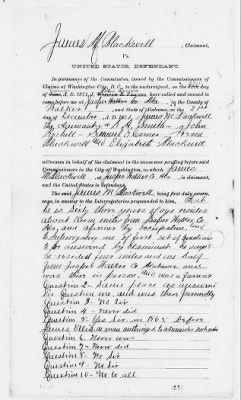 James M Blackwell, Claimant,
Vs.
UNITED STATES, DEFENDANT.
In pursuance of the Commission, issued by the Commissioners of
Claims at Washington City, D. C., to the undersigned, on the
day of A. D. 187 , I have called and caused to
come before me at Jasper Walker Co Ala, in the County of
Walker, and State of Alabama, on the 2nd
day of December A. D. 187 James M Blackwell
the Claimant Smith John
Samuel
Blackwell and Elizabeth Blackwell
witnesses in behalf of the Claimant in the cause now pending before said
Commissioners in the City of Washington, in which James
M Blackwell of Jasper Walker Co Ala is claimant,
and the United States is defendant.
The said James M Blackwell, being first duly sworn,
says, in answer to the Interrogatories propounded to him, that
he is Sixty three years of age resides
about miles from Jasper Walker Co
Ala, and a farmer by occupation and
to interrogatory No 1 first set of questions
to be answered by claimants he says
he resided four miles and one half
from Jasper Walker Co Alabama and
was there in person, and was a farmer
Question 2 - Same place as answered
in Question one, and was then
Question 3 - No Sir
Question 4 - Never did
Question 5 - Yes Sir in 1862 before
James Ellis a man authorized to administer
Question 6 - Never
Question 7 - Never did
Question 8 - No Sir
Question 9 - No Sir
Question 10 - Not at all